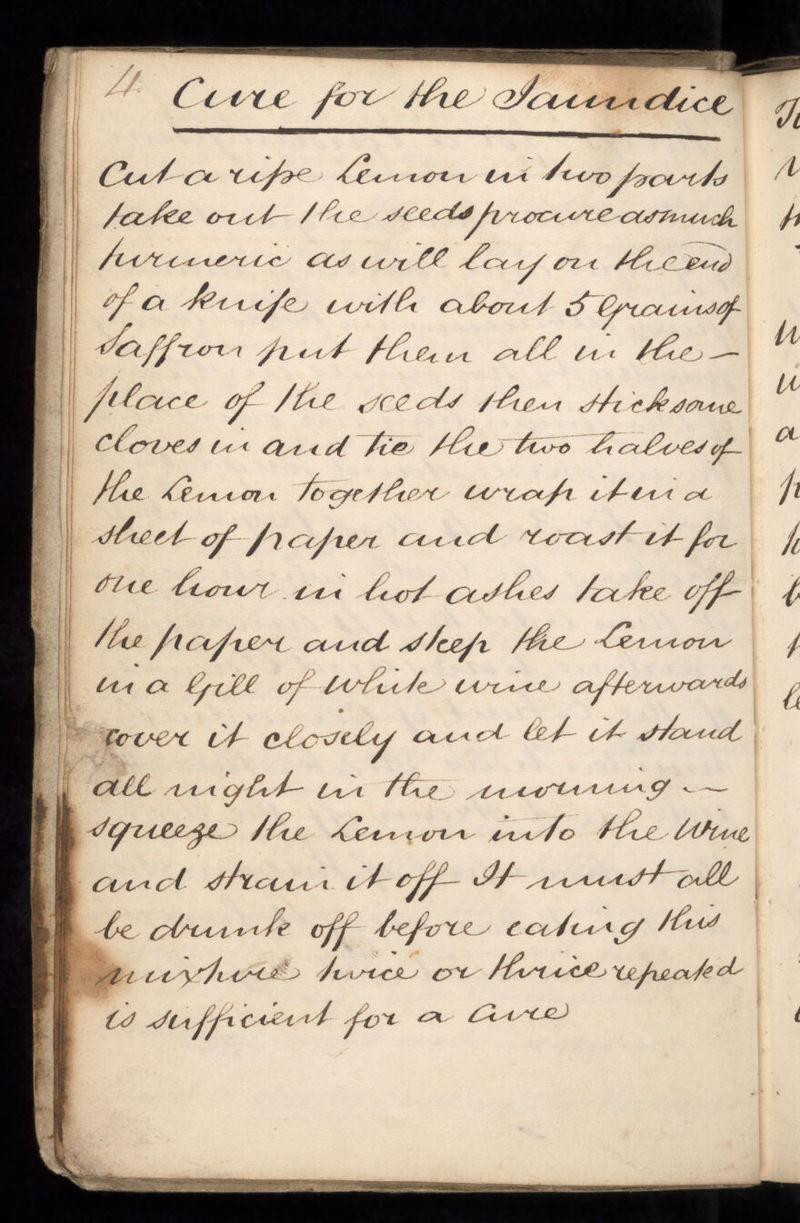 4
Cure for the Jaundice
Cut a ripe Lemon in two parts
take out the seeds procure as much
turmeric as will lay on the end
of a knife with about 5 Grains of
Saffron put them all in the —
place of the seeds then stick some
cloves in and tie the two halves of
the Lemon together wrap it in a
sheet of paper and roast it for
one hour in hot ashes take off
the paper and steep the Lemon
in a Gill of White wine afterwards
cover it closely and let it stand
all night in the morning —
squeeze the Lemon into the Wine
and strain it off It must all
be drunk off before eating this
mixture twice or thrice repeated
is sufficient for a Cure